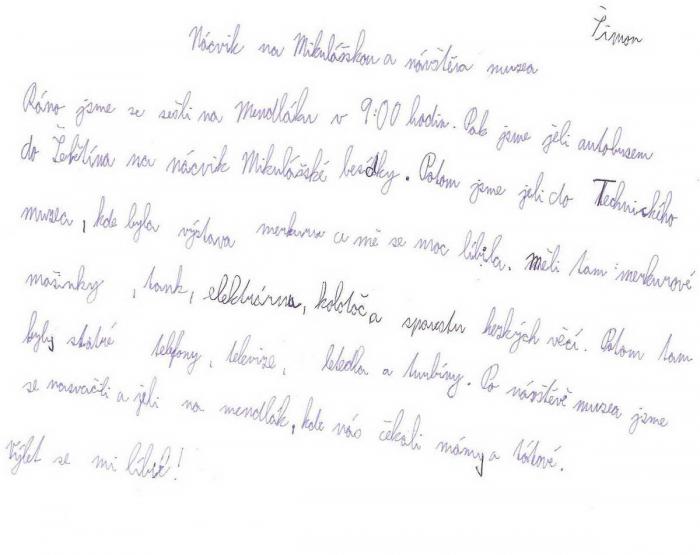 Šimon
Nácvik na Mikulášskou a návštěva muzea
Ráno jsme se sešli na Mendláku v 9:00 hodin. Pak jsme jeli autobusem
do Žebětína na nácvik Mikulášské besídky. Potom jsme jeli do Technického
muzea, kde byla výstava merkuru a mě se moc líbila. měli tam merkurové
mašinky, tank, elektrárna, kolotoč a spoustu hezkých věcí. Potom tam
byly staré telefony, televize, letadla a turbíny. Po návštěvě muzea jsme
se nasvačili a jeli na mendlák, kde nás čekali mámy a tátové.
Výlet se mi líbil!